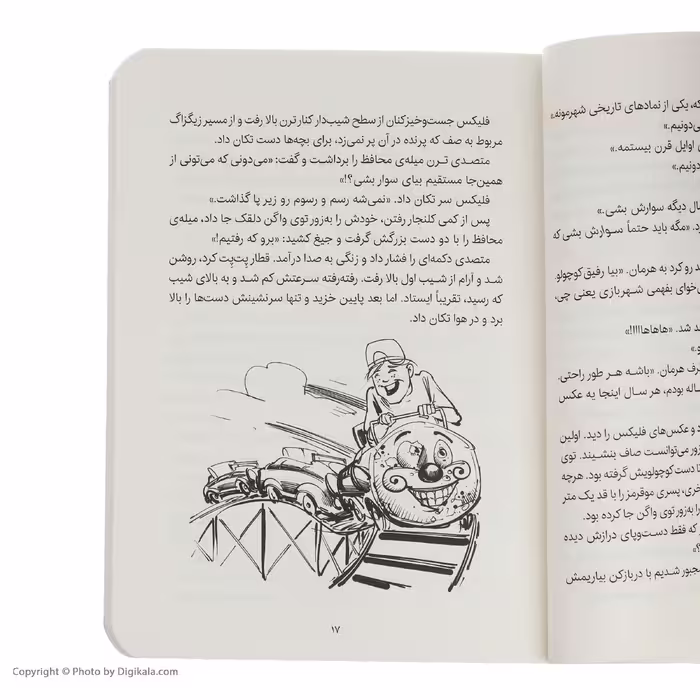 که، یکی از نمادهای تاریخی شهرمونه
ی‌دونیم.»
اوایل قرن بیستمه.»
دونیم.»
ال دیگه سوارش بشی.»
«مگه باید حتماً سوارش بشی که
د رو کرد به هرمان. «بیا رفیق کوچولو.
ی‌خوای بفهمی شهربازی یعنی چی،
د شد. «هاهاهاااا!»
و.»
رف هرمان. «باشه هر طور راحتی.
ساله بودم، هر سال اینجا یه عکس
د و عکس‌های فلیکس را دید. اولین
زور می‌توانست صاف بنشیند. توی
ا دست کوچولویش گرفته بود. هرچه
خری، پسری موقرمز را با قد یک متر
را به‌زور توی واگن جا کرده بود.
که فقط دست‌وپای درازش دیده
؟»
مجبور شدیم با دربازکن بیاریمش
فلیکس جست‌وخیزکنان از سطح شیب‌دار کنار ترن بالا رفت و از مسیر زیگزاگ
مربوط به صف که پرنده در آن پر نمی‌زد، برای بچه‌ها دست تکان داد.
متصدی ترن میله‌ی محافظ را برداشت و گفت: «می‌دونی که می‌تونی از
همین‌جا مستقیم بیای سوار بشی؟!»
فلیکس سر تکان داد. «نمی‌شه رسم و رسوم رو زیر پا گذاشت.»
پس از کمی کلنجار رفتن، خودش را به‌زور توی واگن دلقک جا داد، میله‌ی
محافظ را با دو دست بزرگش گرفت و جیغ کشید: «برو که رفتیم!»
متصدی دکمه‌ای را فشار داد و زنگی به صدا درآمد. قطار پِت‌پِت کرد، روشن
شد و آرام از شیب اول بالا رفت. رفته‌رفته سرعتش کم شد و به بالای شیب
که رسید، تقریباً ایستاد. اما بعد پایین خزید و تنها سرنشینش دست‌ها را بالا
برد و در هوا تکان داد.
۱۷
Copyright © Photo by Digikala.com